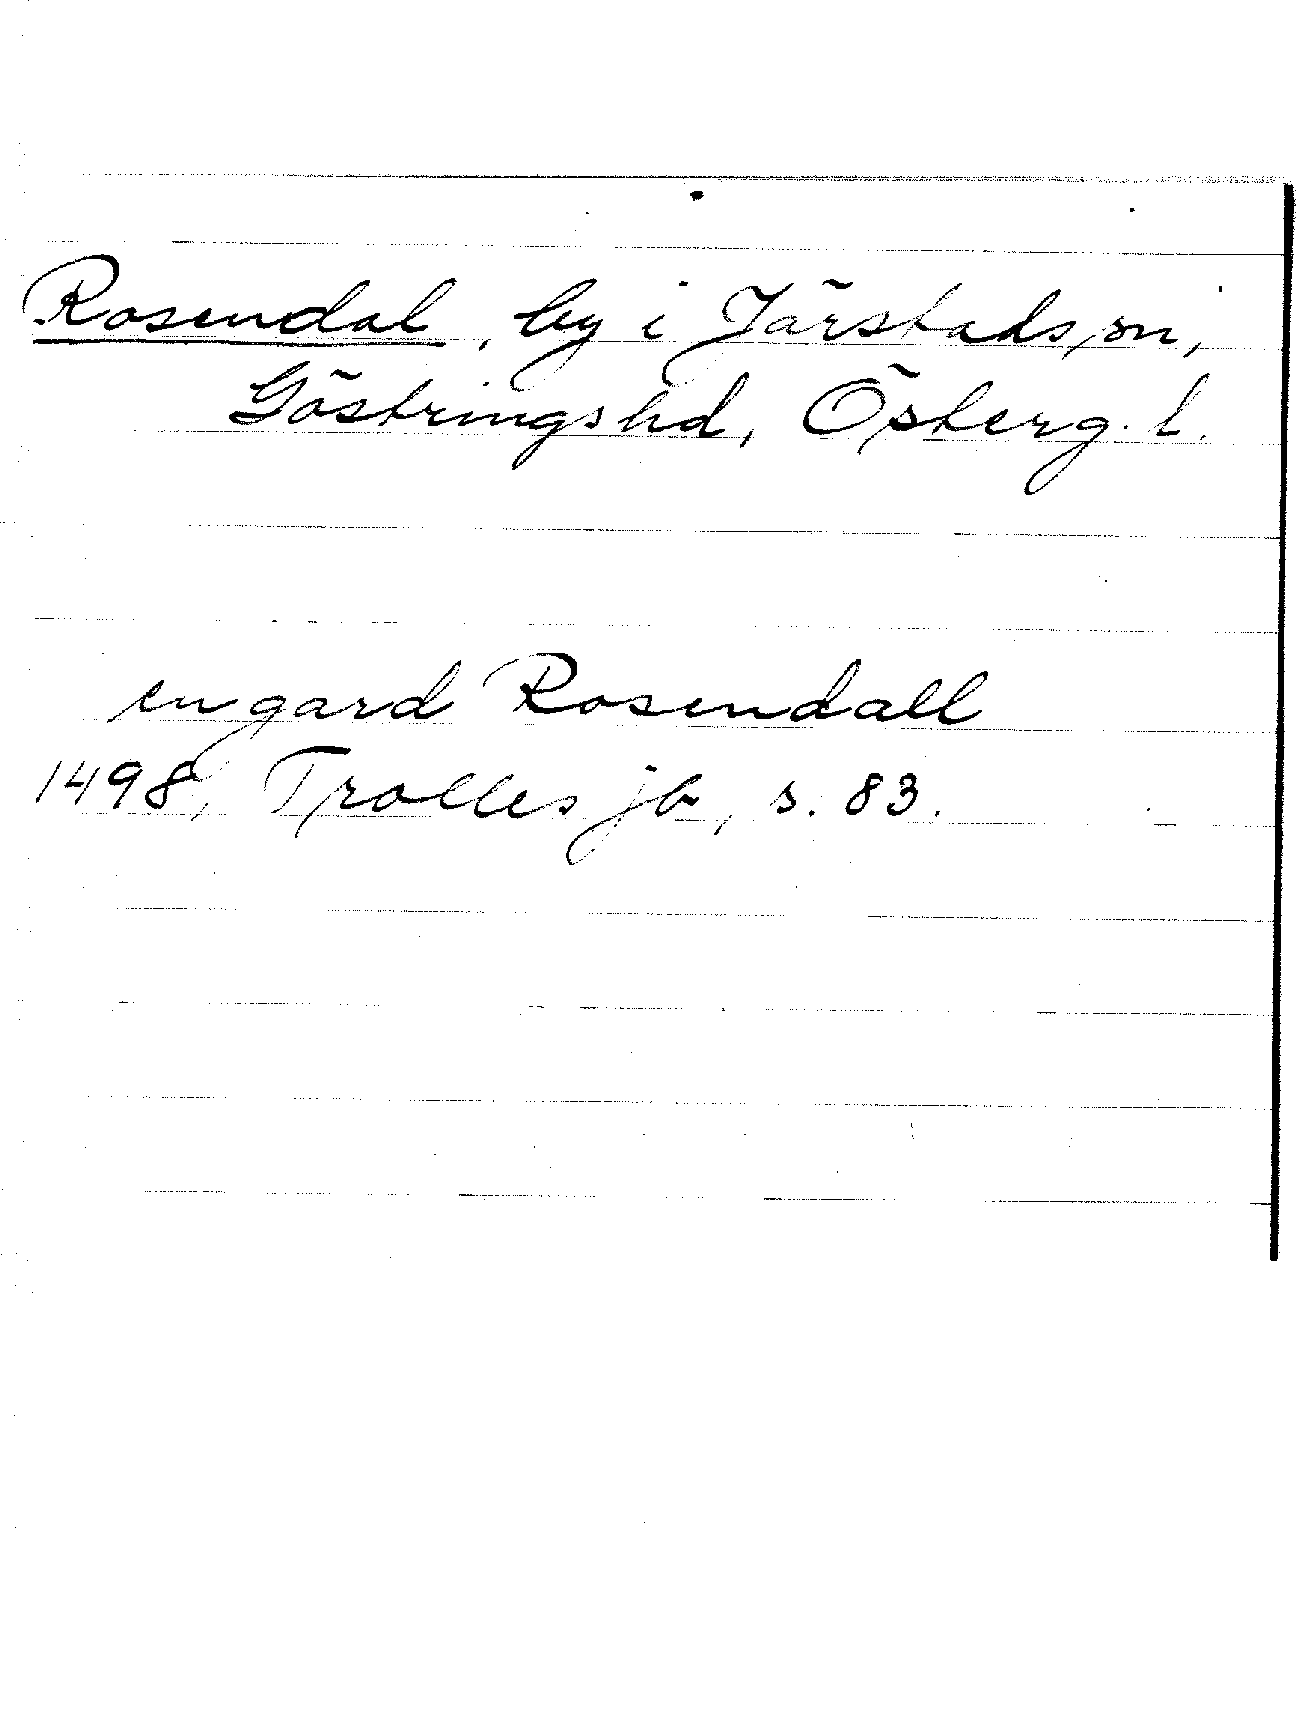 Rosendal, by i Järstads sn,
Göstringshd, Österg. l.
en gard Rosendall
1498, Trolles jb, s. 83.